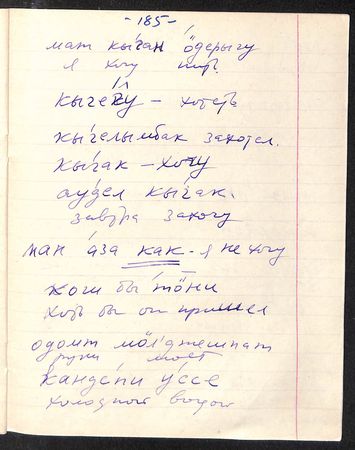 -185-
мат кы́ган ӧдерыгу
я хочу пить
кыгеку̂ – хотеть
кы́гелымбак захотел.
кы́гак – хочу
ау́дел кы́гак.
завтра захочу
ман а́за как - я не хочу
хош бы то̄ни
хоть бы он пришел
одомт мӧл'джешпат
руки моет
кандёпи у́ссе
холодной водой